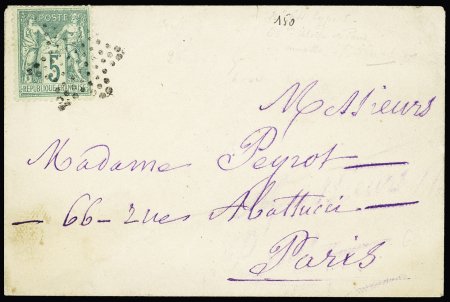 POSTE
5
REPUBLIQUE FRANCAISE
150
Messieurs
Madame Peyrot —
— 66 – rues Abattucci —
Paris